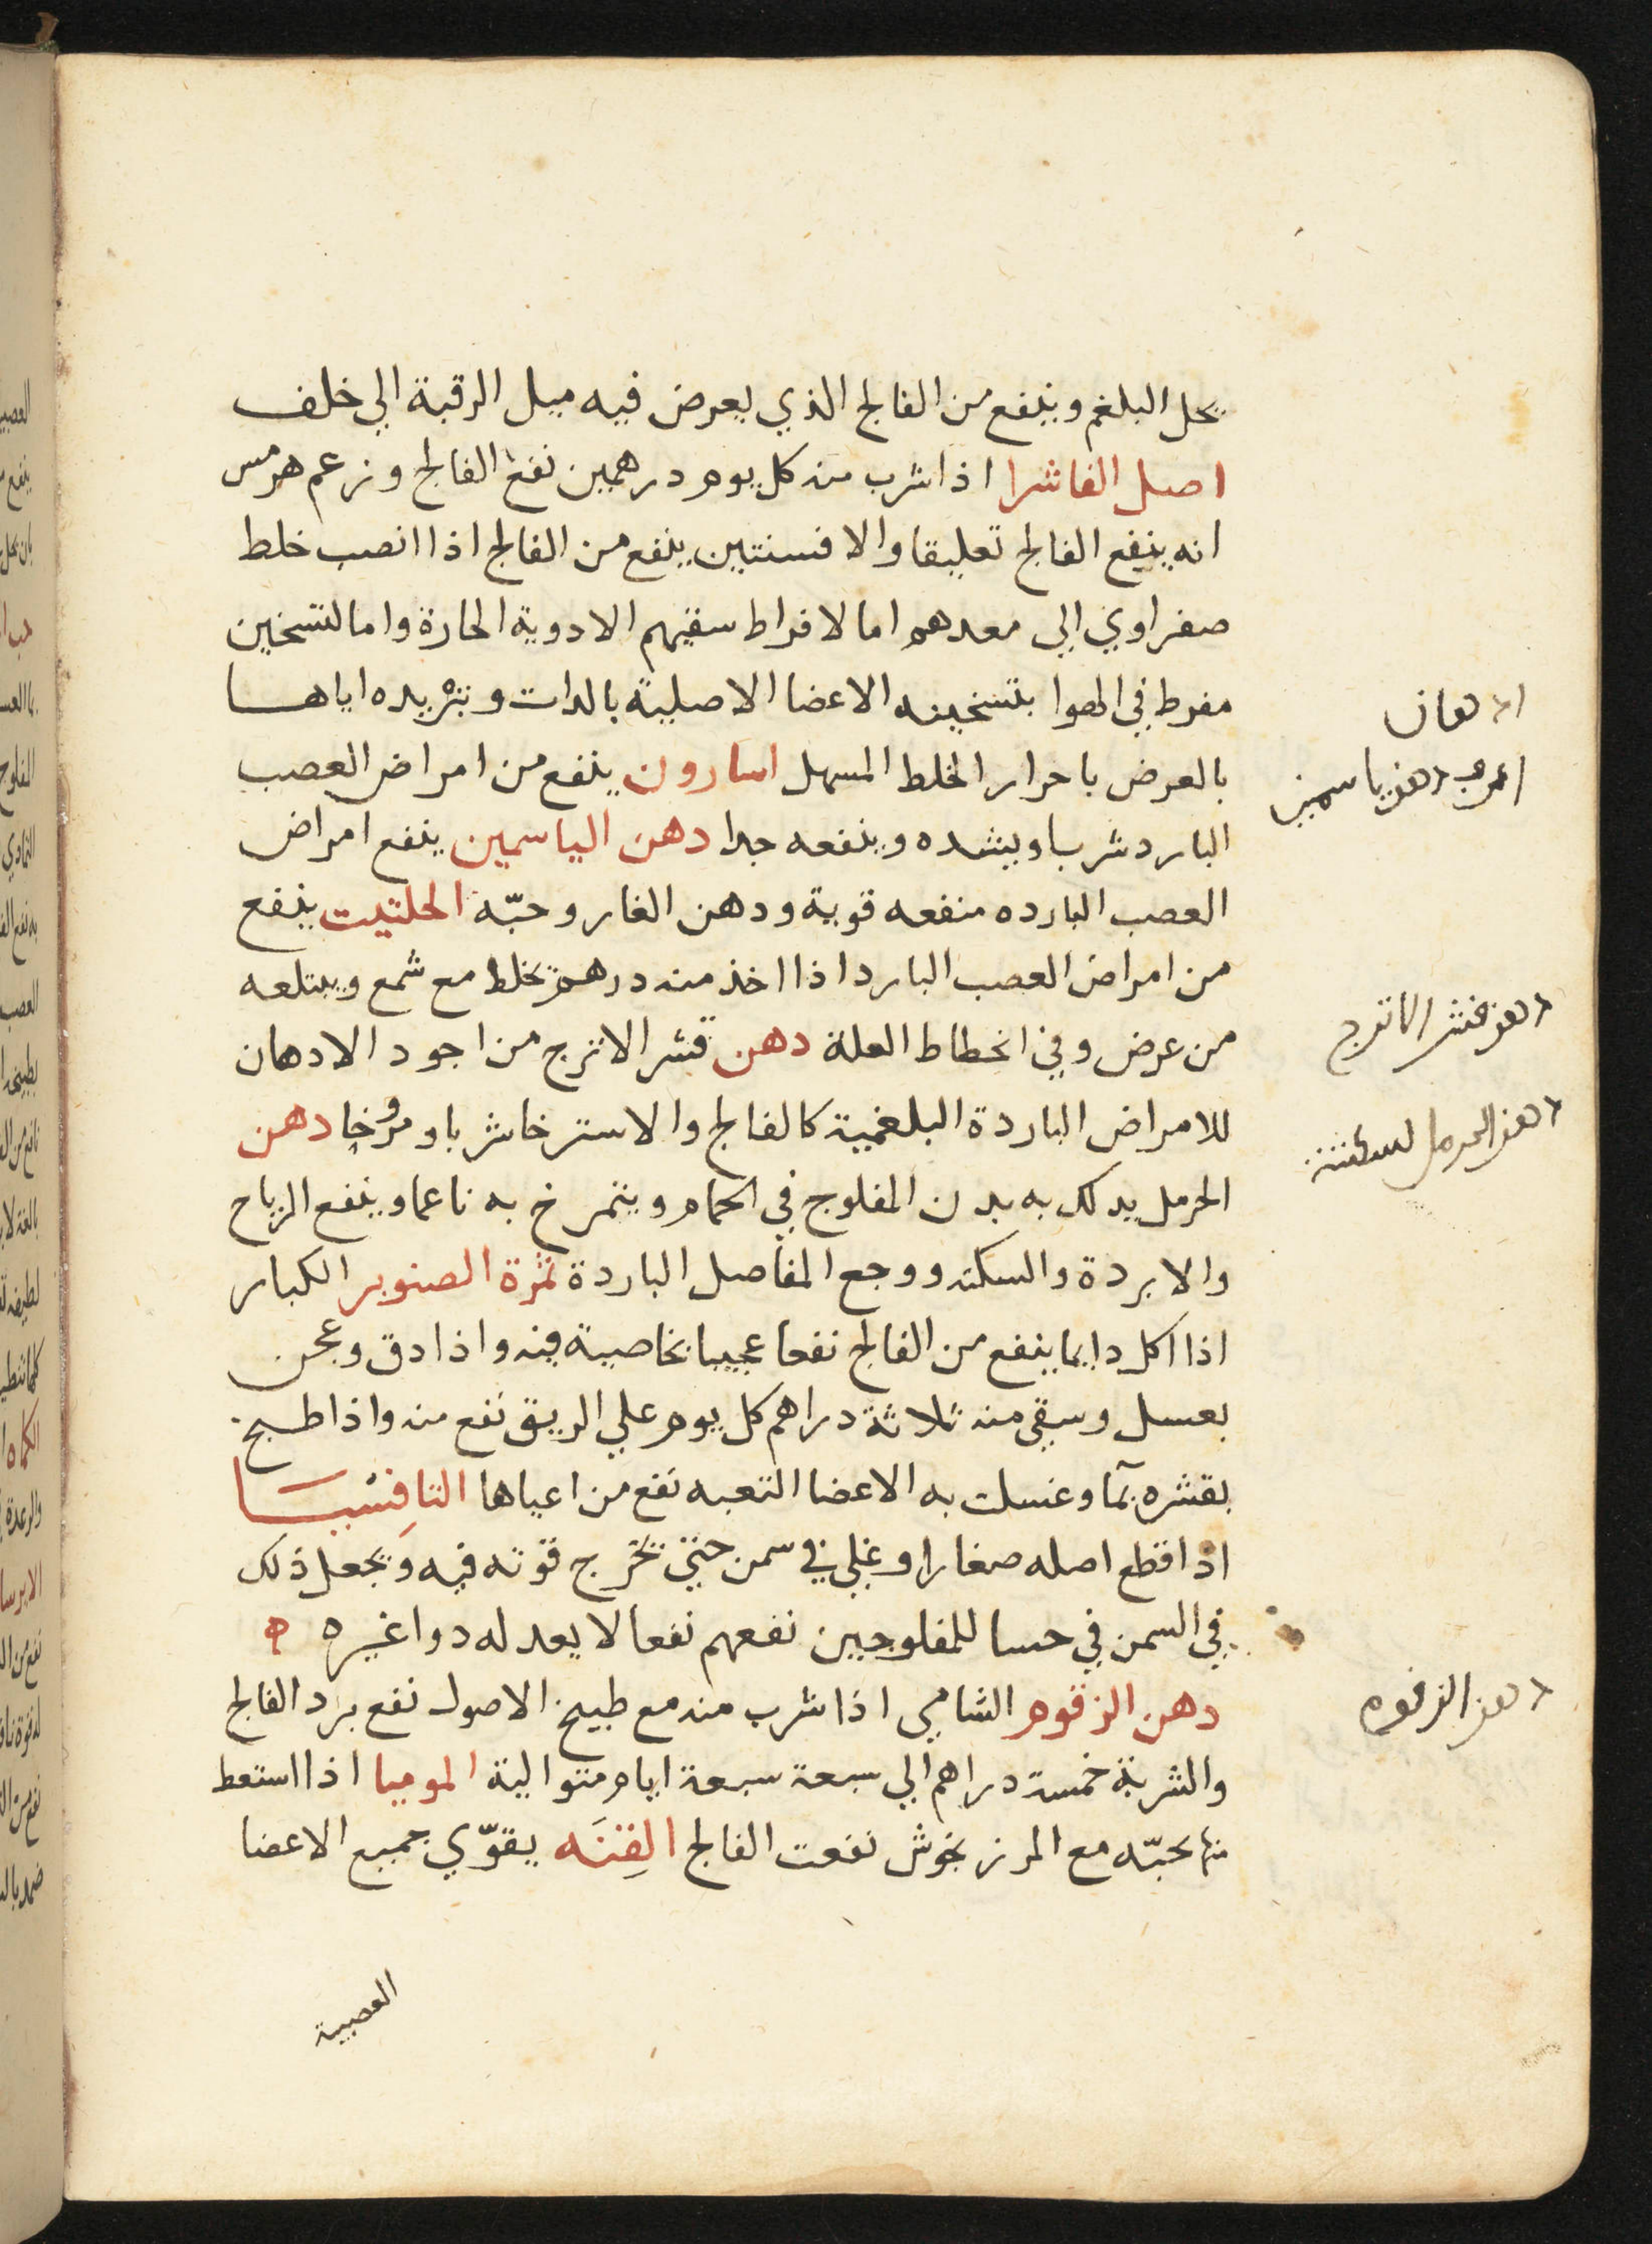 يحل البلغم وينفع من الفالج الذي يعرض فيه ميل الرقبة الي خلف
اصل الفاشرا اذا شرب منه كل يوم درهمين نفع الفالج وزعم هرمس
انه ينفع الفالج تعليقا والافسنتين ينفع من الفالج اذا انصب خلط
صفراوي الي معدهم اما لافراط سقيهم الادوية الحارة واما لتسخين
مفرط في الهوا بتسخينه الاعضا الاصلية بالذات وتبريده اياها
بالعرض باحرار الخلط المسهل اسارون ينفع من امراض العصب
البارد شربا ويشده وينفعه جدا دهن الياسمين ينفع امراض
العصب البارده منفعه قوية ودهن الغار وحبّه الحلتيت ينفع
من امراض العصب البارد اذا اخذ منه درهم يخلط مع شمع ويبتلعه
من عرض وفي انحطاط العلة دهن قشر الاترج من اجود الادهان
للامراض الباردة البلغمية كالفالج والاسترخا شربا ومروخا دهن
الحرمل يدلك به بدن المفلوج في الحمام ويتمرخ به ناعما وينفع الرياح
والابردة والسكته ووجع المفاصل الباردة ثمرة الصنوبر الكبار
اذا اكل دايما ينفع من الفالج نفعا عجيبا بخاصية فيه واذا دق وعجن
بعسل وسقي منه ثلاثة دراهم كل يوم علي الريق نفع منه واذا طبخ
بقشره بمآ وغسلت به الاعضا التعبه نفع من اعياها التافِسيَا
اذا قطع اصله صغارا وغلي في سمن حتي تخرج قوته فيه ويجعل ذلك
في السمن في حسا للمفلوجين نفعهم نفعا لا يعدله دوا غيره ه
دهن الزقوم الشامي اذا شرب منه مع طبيخ الاصول نفع برد الفالج
والشربة خمسة دراهم الي سبعة سبعة ايام متوالية الموميا اذا استعط
منها بحبّه مع المرزنجوش نفعت الفالج القِنَه يقوّي جميع الاعضا
العصبية
ادهان
دهن ياسمين
دهن قشر الاترج
دهن الحرمل للسكتة
دهن الزقوم